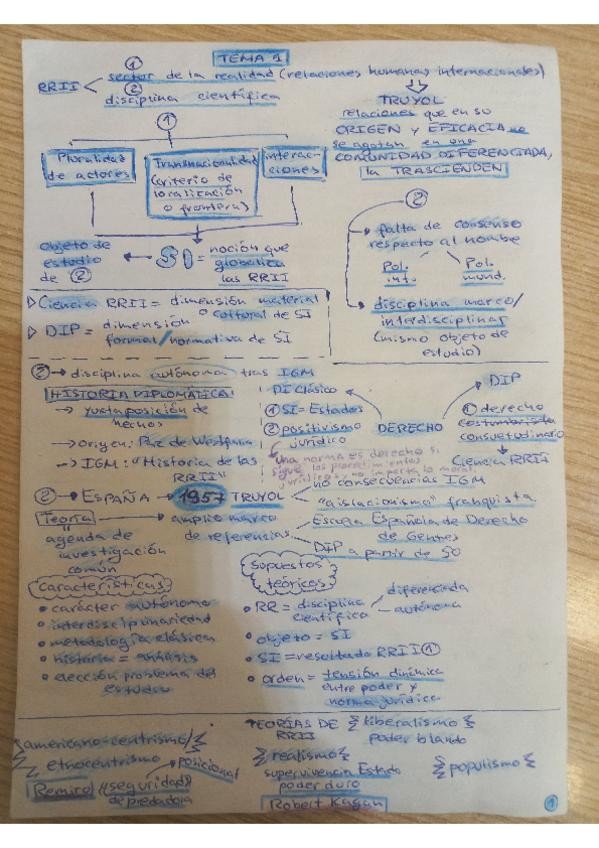 TEMA 1
① ②
RRII
sector de la realidad (relaciones humanas internacionales)
disciplina científica
TRUYOL
relaciones que en su
ORIGEN y EFICACIA no
se agotan en una
COMUNIDAD DIFERENCIADA,
la TRASCIENDEN
①
Pluralidad
de actores
Transnacionalidad
(criterio de
localización
o frontera)
interac-
ciones
Objeto de
estudio
de ②
SI = noción que
globaliza
las RRII
②
falta de consenso
respecto al nombre
Pol.
int.
Pol.
mund.
disciplina marco/
interdisciplinar
(mismo objeto de
estudio)
Ciencia RRII = dimensión material
o cultural de SI
DIP = dimensión
formal/normativa de SI
② → disciplina autónoma tras IGM
HISTORIA DIPLOMÁTICA:
→ yuxtaposición de
hechos
→ Origen: Paz de Westfalia
→ IGM: "Historia de las
RRII"
DI Clásico
① SI = Estados
② positivismo
jurídico
DERECHO
DIP
① derecho
consuetudinario
Ciencia RRII
Una norma es derecho si
sigue los procedimientos
jurídicos, no importa la moral
② → ESPAÑA → 1957 TRUYOL
no consecuencias IGM
"aislacionismo" franquista
Teoría → amplio marco
de referencias
agenda de
investigación
común
Escuela Española de Derecho
de Gentes
DIP a partir de 50
Características
• carácter autónomo
• interdisciplinariedad
• metodología clásica
• historia = análisis
• elección problema del
estudio
Supuestos
teóricos
• RR = disciplina
científica
diferenciada
autónoma
• objeto = SI
• SI = resultado RRII ①
• orden = tensión dinámica
entre poder y
norma jurídica
TEORÍAS DE
RRII
americano-centrismo/
etnocentrismo
posicional
Remiro "seguridad"
depredadora
realismo
supervivencia Estado
poder duro
Robert Kagan
liberalismo
poder blando
populismo
①